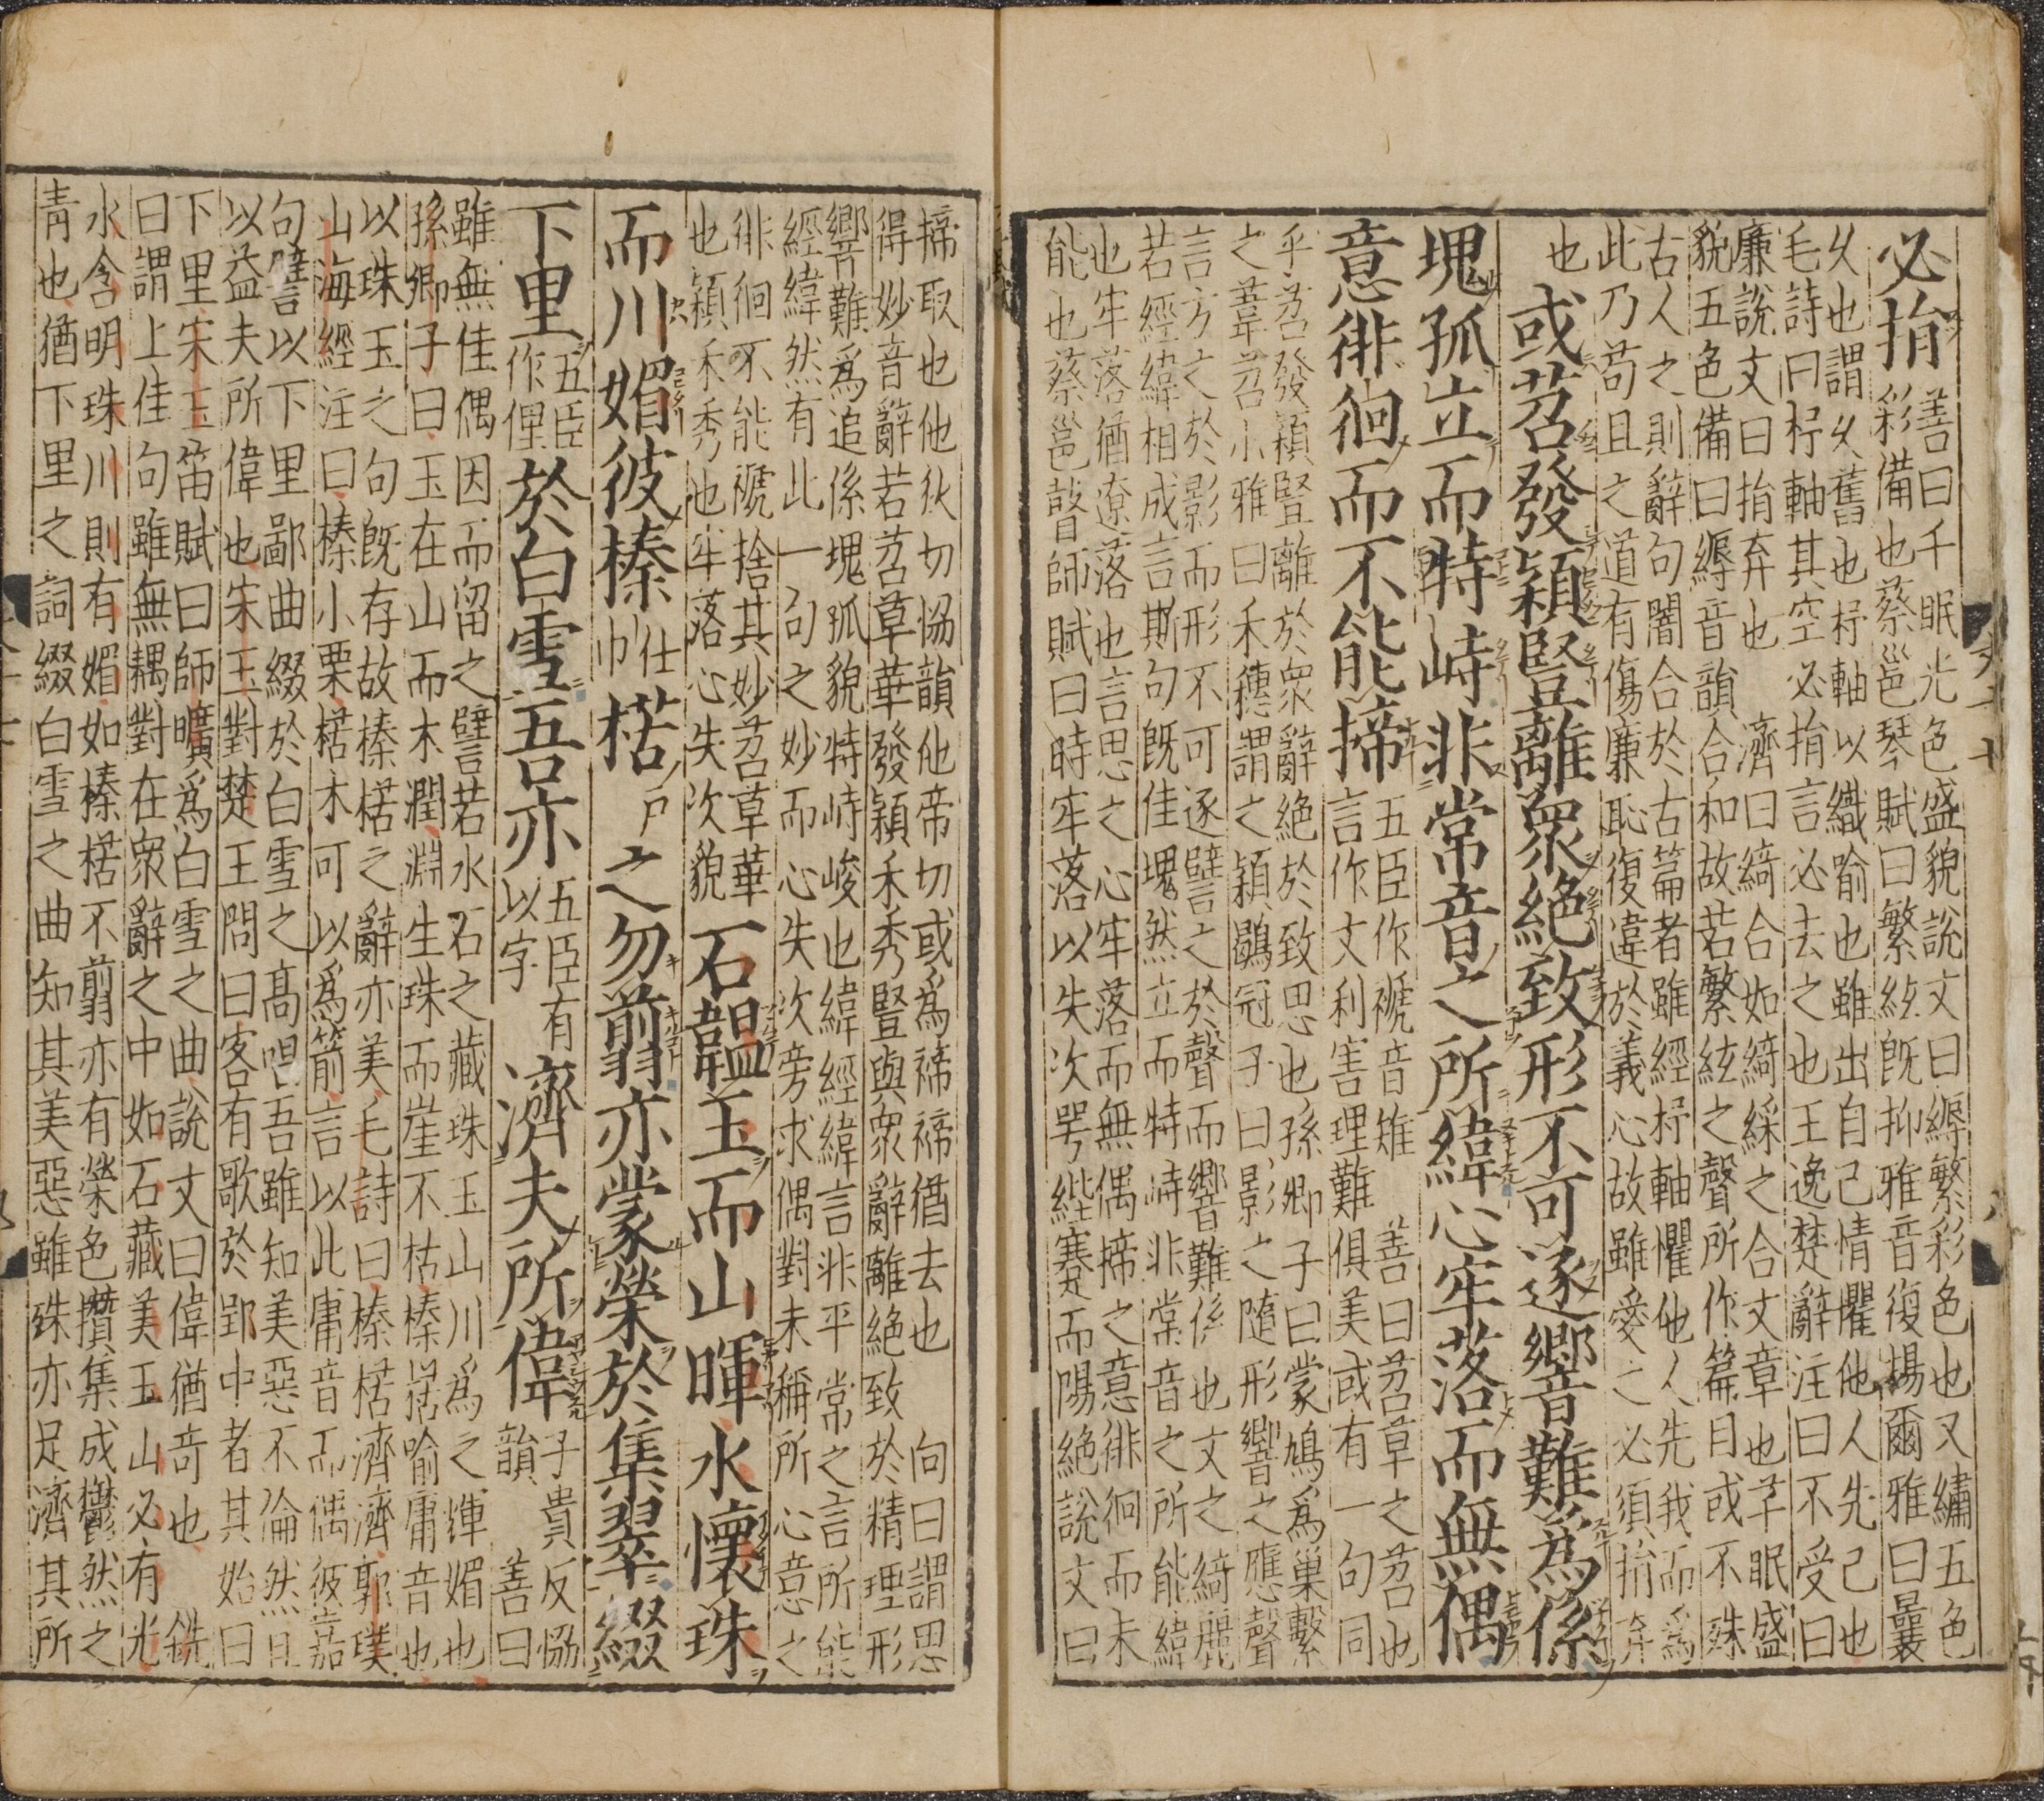 必捐
善曰千眠光色盛貌說文曰縟繁彩色也又繡五色
彩備也蔡邕琴賦曰繁絃旣抑雅音復揚爾雅曰曩
久也謂久舊也杼軸以織喻也雖出自己情懼他人先己也
毛詩曰杼軸其空必捐言必去之也王逸楚辭注曰不受曰
廉說文曰捐弃也 濟曰綺合如綺綵之合文章也芊眠盛
貌五色備曰縟音韻合和故若繁絃之聲所作篇目或不殊
古人之則辭句闇合於古篇者雖經杼軸懼他人先我而爲
此乃苟且之道有傷廉恥復違於義心故雖愛之必須捐弃
也
或苕發穎豎離衆絶致形不可逐響難爲係
塊孤立而特峙非常音之所緯心牢落而無偶
意徘徊而不能揥
五臣作褫音雉 善曰苕草之苕也
言作文利害理難俱美或有一句同
乎苕發穎豎離於衆辭絶於致思也孫卿子曰蒙鳩爲巢繫
之葦苕小雅曰禾穗謂之穎鶡冠子曰影之隨形響之應聲
言方之於影而形不可逐譬之於聲而響難係也文之綺麗
若經緯相成言斯句旣佳塊然立而特峙非常音之所能緯
也牢落猶遼落也言思之心牢落而無偶揥之意徘徊而未
能也蔡邕瞽師賦曰時牢落以失次咢䋽蹇而陽絶說文曰
揥取也他狄切協韻他帝切或爲褅褅猶去也 向曰謂思
得妙音辭若苕草華發穎禾秀豎與衆辭離絶致於精理形
響難爲追係塊孤貌特峙峻也緯經緯言非平常之言所能
經緯然有此一句之妙而心失次旁求偶對未稱所心意之
徘徊不能褫捨其妙苕草華
也穎禾秀也牢落心失次貌
石韞玉而山暉水懷珠
而川媚彼榛仕巾楛戶之勿翦亦蒙榮於集翠綴
下里五臣作俚於白雪吾亦五臣有以字濟夫所偉
子貴反恊韻 善曰
雖無佳偶因而留之譬若水石之藏珠玉山川爲之輝媚也
孫卿子曰玉在山而木潤淵生珠而崖不枯榛楛喻庸音也
以珠玉之句旣存故榛楛之辭亦美毛詩曰榛楛濟濟郭璞
山海經注曰榛小栗楛木可以爲箭言以此庸音而偶彼嘉
句譬以下里鄙曲綴於白雪之高唱吾雖知美惡不倫然且
以益夫所偉也宋玉對楚王問曰客有歌於郢中者其始曰
下里宋玉笛賦曰師曠爲白雪之曲說文曰偉猶奇也 銑
曰謂上佳句雖無耦對在衆辭之中如石藏美玉山必有光
水含明珠川則有媚如榛楛不翦亦有榮色攢集成鬱然之
青也猶下里之詞綴白雪之曲知其美惡雖殊亦足濟其所